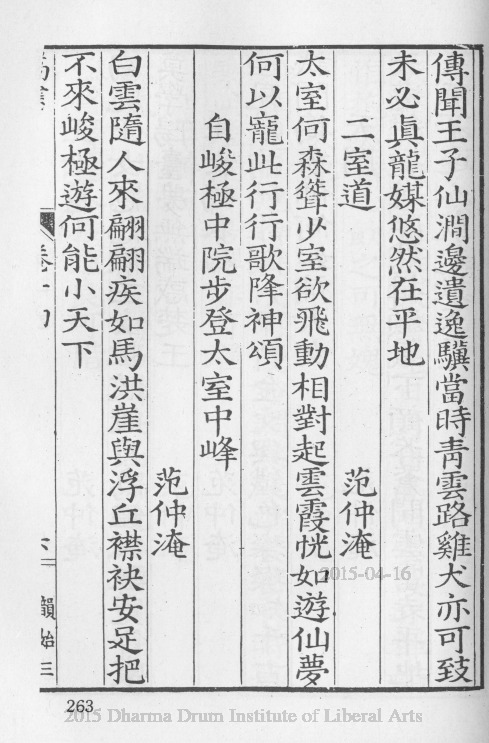 傳聞王子仙澗邊遺逸驥當時青雲路雞犬亦可致
未必眞龍媒悠然在平地
二室道 范仲淹
太室何森聳少室欲飛動相對起雲霞恍如遊仙夢
何以寵此行行歌降神頌
自峻極中院步登太室中峰
范仲淹
白雲隨人來翩翩疾如馬洪崖與浮丘襟袂安足把
不來峻極遊何能小天下
卷十
韻始三
263
2015-04-16
2015 Dharma Drum Institute of Liberal Arts